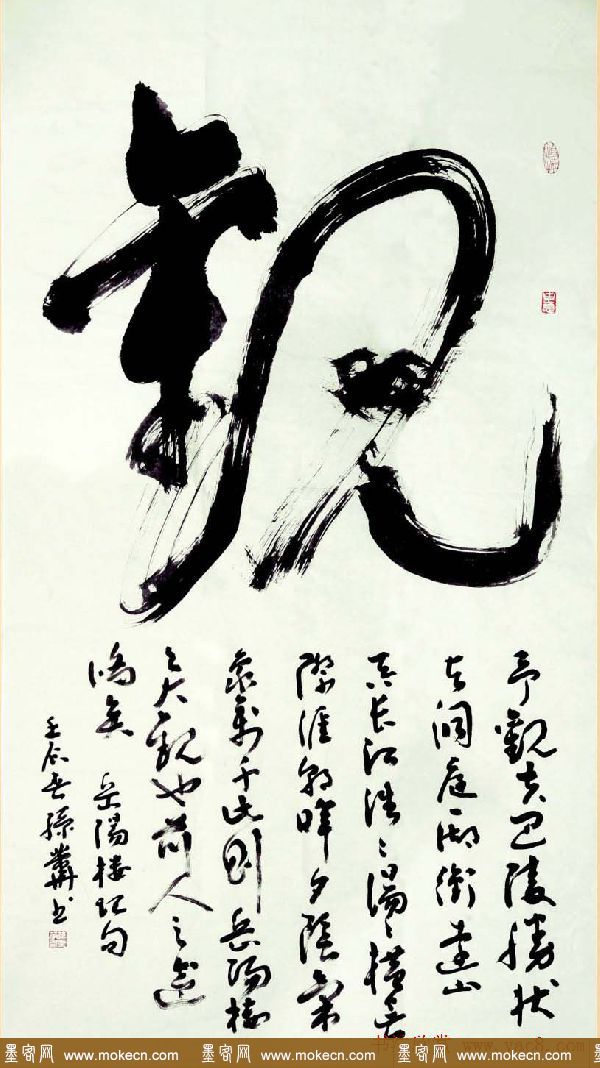 觀
予觀夫巴陵勝状
在洞庭湖銜遠山
吞長江浩〻湯〻横无
際涯朝暉夕陰氣
象萬千此則岳陽樓
之大觀也前人之述
備矣 岳陽楼记句
壬辰春孫书
www.yac8.com
墨客网 www.mokecn.com 墨客网 www.mokecn.com 墨客网 www.mokecn.com